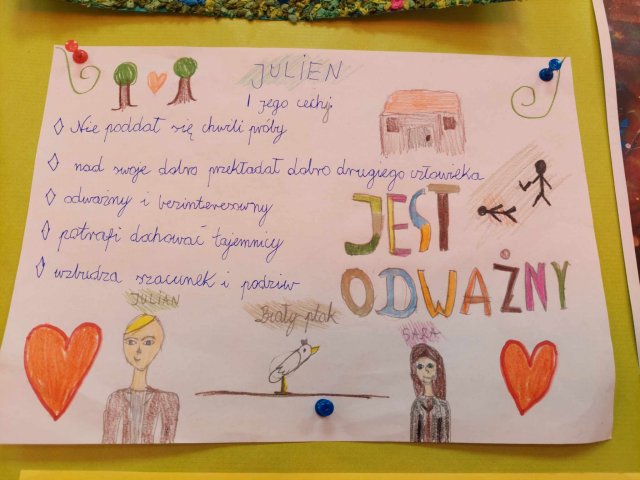 JULIEN
I jego cechy:
Nie poddał się chwili próby
nad swoje dobro przekładał dobro drugiego człowieka
odważny i bezinteresowny
potrafi dochować tajemnicy
wzbudza szacunek i podziw
JEST
ODWAŻNY
JULIAN
Biały ptak
SARA